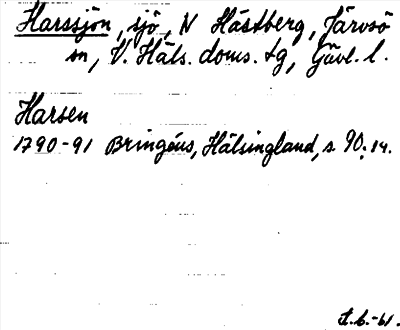 Harssjön, sjö, N Hästberg, Järvsö
sn, V. Häls. doms. tg, Gävl. l.
Harsen
1790-91 Bringéus, Hälsingland, s. 90. 14.
-61.